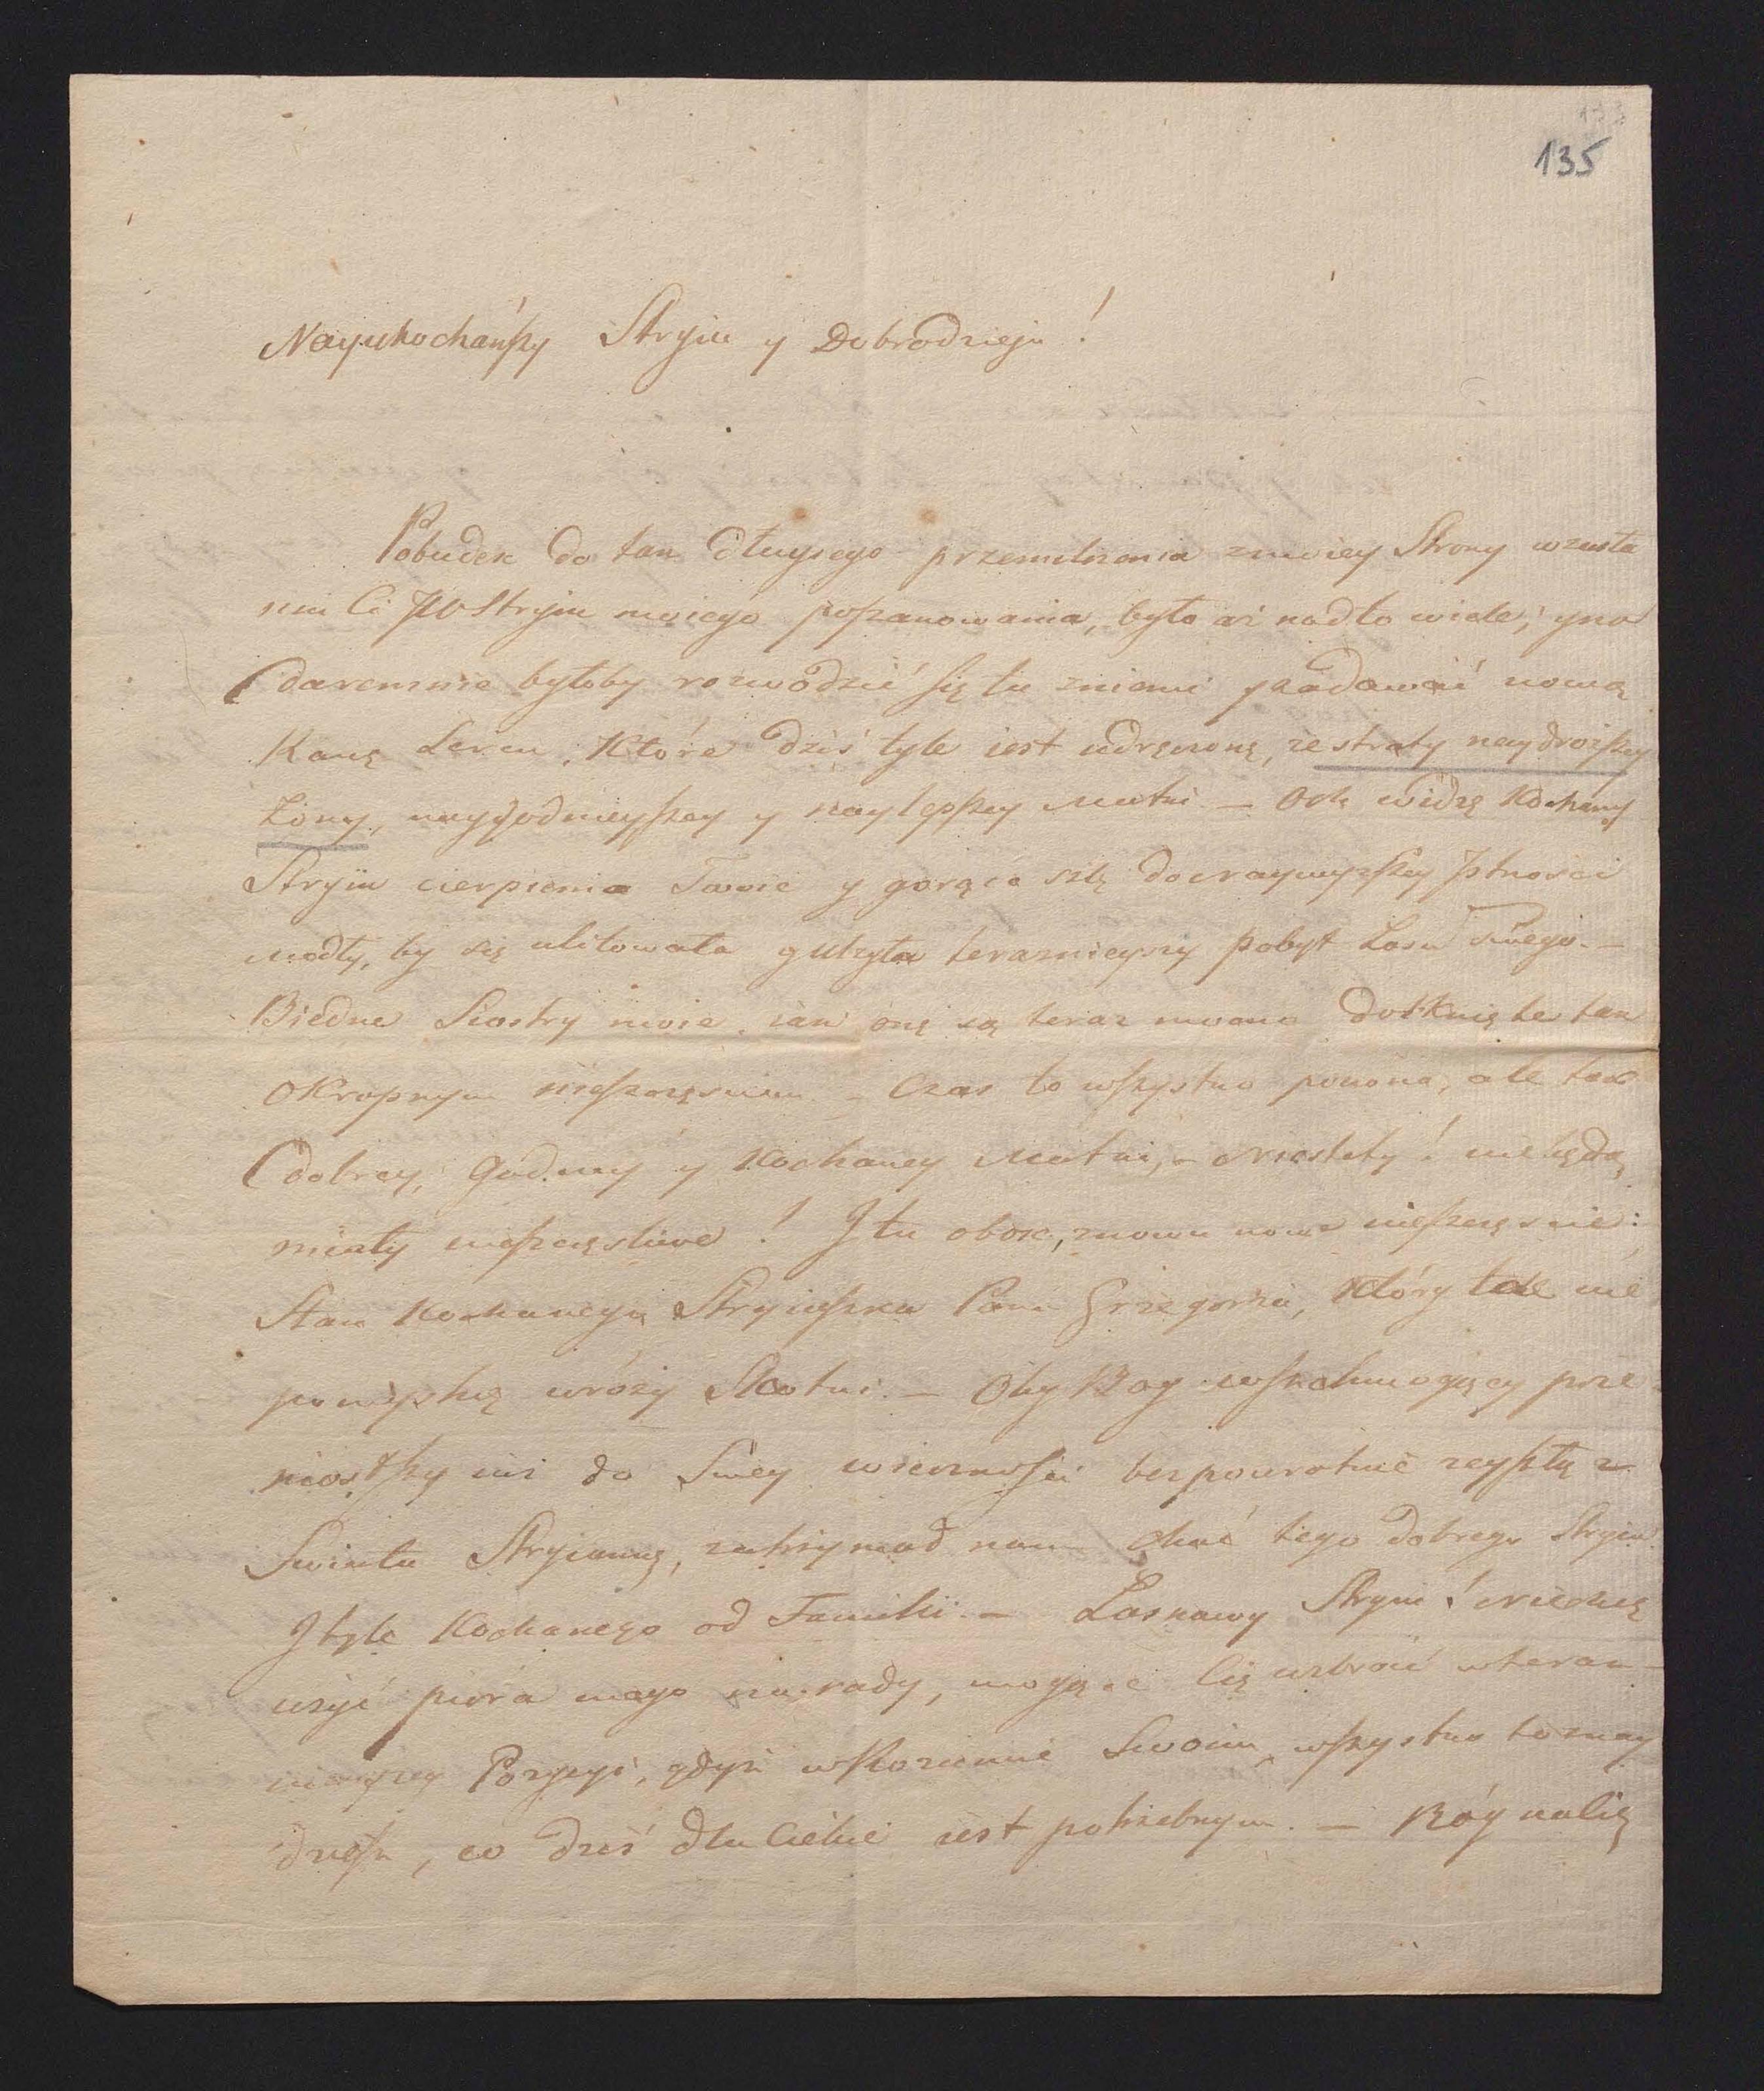 135
Nayukochańszy Stryiu y Dobrodzieju!
Pobudek do tak dłuższego przemilczenia z moiey Strony w zasła
niu Ci JW Stryiu moiego poszanowania, było aż nadto wiele; y na
daremnie byłoby rozwodzić się tu z niemi y zadawać nową
Ranę Sercu, Które dziś tyle iest udręczone, ze straty naydroższey
Żony, naygodnieyszey y naylepszey Matki — Och widzę Kochany
Stryiu cierpienia Twoie y gorące szlę do naywyższey Istności
modły, by się ulitowała y ulżyła teraźnieyszy pobyt Losu Twego. —
Biedne Siostry moie, iak one są teraz mocno dotknięte tak
okropnym nieszczęściem — Czas to wszystko pokona, ale tak
dobrey, godney y Kochaney Matki, — Niestety! nie będą
miały nieszczęśliwe! I tu obok, znowu nowe nieszczęście:
Stan Kochanego Stryiaszka Pana Grzegorza, Który tak nie
pomyślne wróży Skutki. — Oby Bog wszechmogący prze
niosłszy iuż do Swey wieczności bezpowrotnie zeyszłą z
Swiata Stryiankę, zatrzymał nam choć tego dobrego Stryia
I tyle Kochanego od Familii. — Łaskawy Stryiu! niechcę
użyć pióra mego na rady, mogące Cię uzbroić w teraz
nieyszey Pozycyi, gdyż w Rozumie Swoim wszystko to znay
dziesz, co dziś dla Ciebie iest potrzebnym. — Bóg na Cię